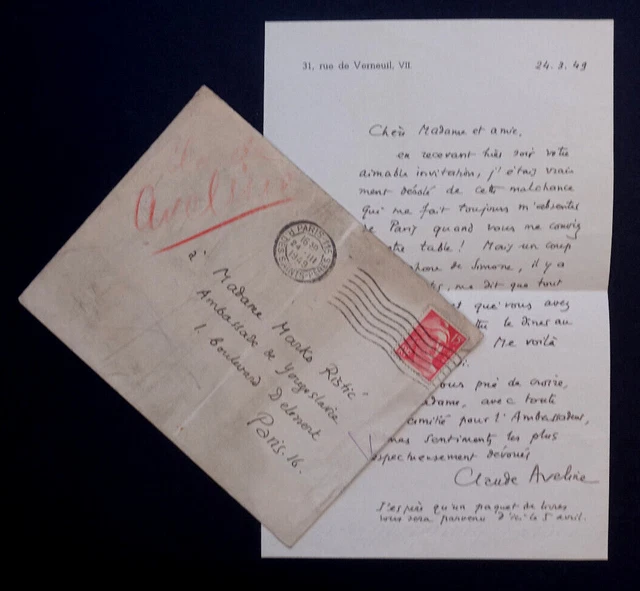 31, rue de Verneuil, VII.
24.3.49
Chère Madame et amie,
en recevant hier soir votre
aimable invitation, j'étais vrai-
ment désolé de cette malchance
qui me fait toujours m'absenter
de Paris quand vous me conviez
table! Mais un coup
phone de Simone, il y a
me dit que tout
et que vous avez
le dîner au
Me voilà
prie de croire,
avec toute
amitié pour l'Ambassadeur,
mes sentiments les plus
respectueusement dévoués
Claude Aveline
J'espère qu'un paquet de livres
vous sera parvenu d'ici le 5 avril.
Aveline
PARIS
24 III
1949
à Madame Marko Ristić
Ambassade de Yougoslavie
1, boulevard Delessert
Paris. 16.